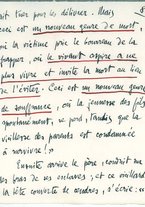 ait tuer pour les délivrer. Mais
ceci est un nouveau genre de mort
où la victime prie le bourreau de la
frapper, où le vivant aspire à ne
plus vivre et invite la mort au lieu
de l'éviter. Ceci est un nouveau genre
de souffrance, où la jeunesse des fils
spontanément, se perd, tandis que la
vieillesse des parents est condamnée
à survivre !»
Ensuite arrive le père, conduit
les bras de ses esclaves, et ce vieillard
la tête couverte de cendres, s'écrie :